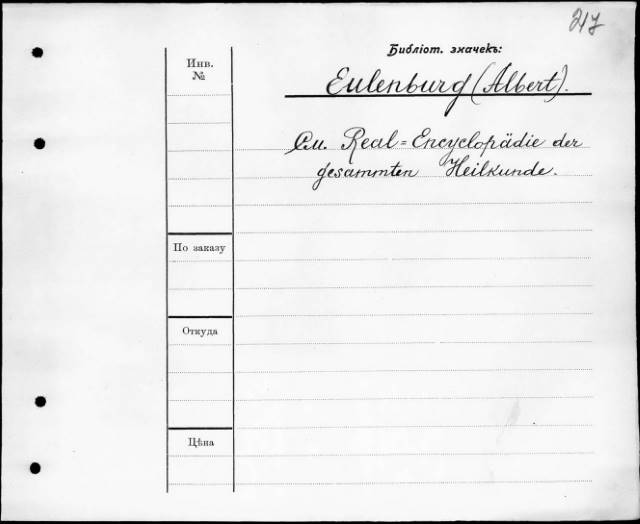 217
Библіот. значекъ:
Инв.
№
Eulenburg (Albert).
См. Real=Encyclopädie der
gesammten Heilkunde.
По заказу
Откуда
Цѣна